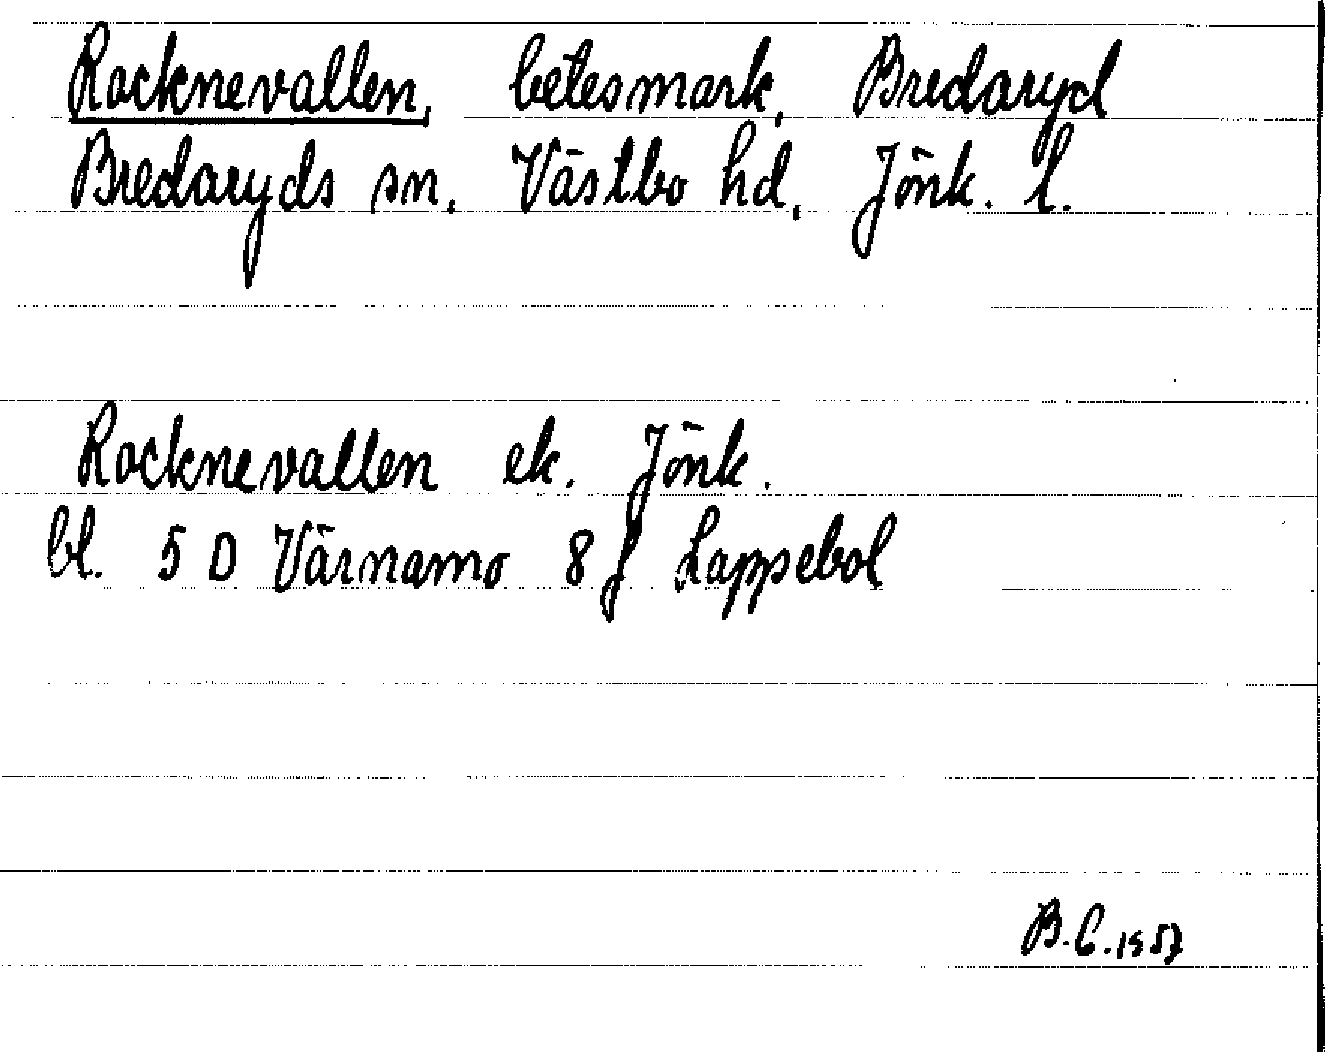 Rocknevallen, betesmark, Bredaryd
Bredaryds sn, Västbo hd, Jönk. l.
Rocknevallen ek. Jönk.
bl. 5 D Värnamo 8 f Lappebol
B.C. 1957